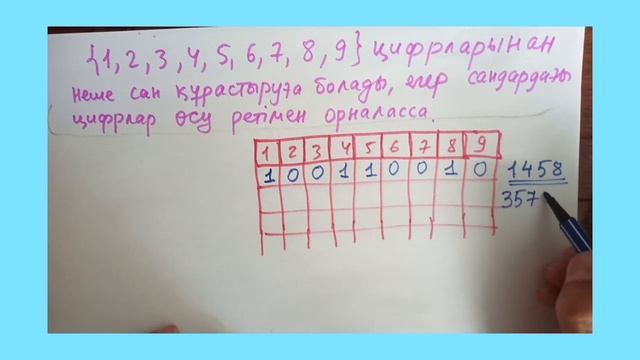 {1, 2, 3, 4, 5, 6, 7, 8, 9} цифрларынан
неше сан құрастыруға болады, егер сандардағы
цифрлар өсу ретімен орналасса.
1 2 3 4 5 6 7 8 9
1 0 0 1 1 0 0 1 0 1458
357